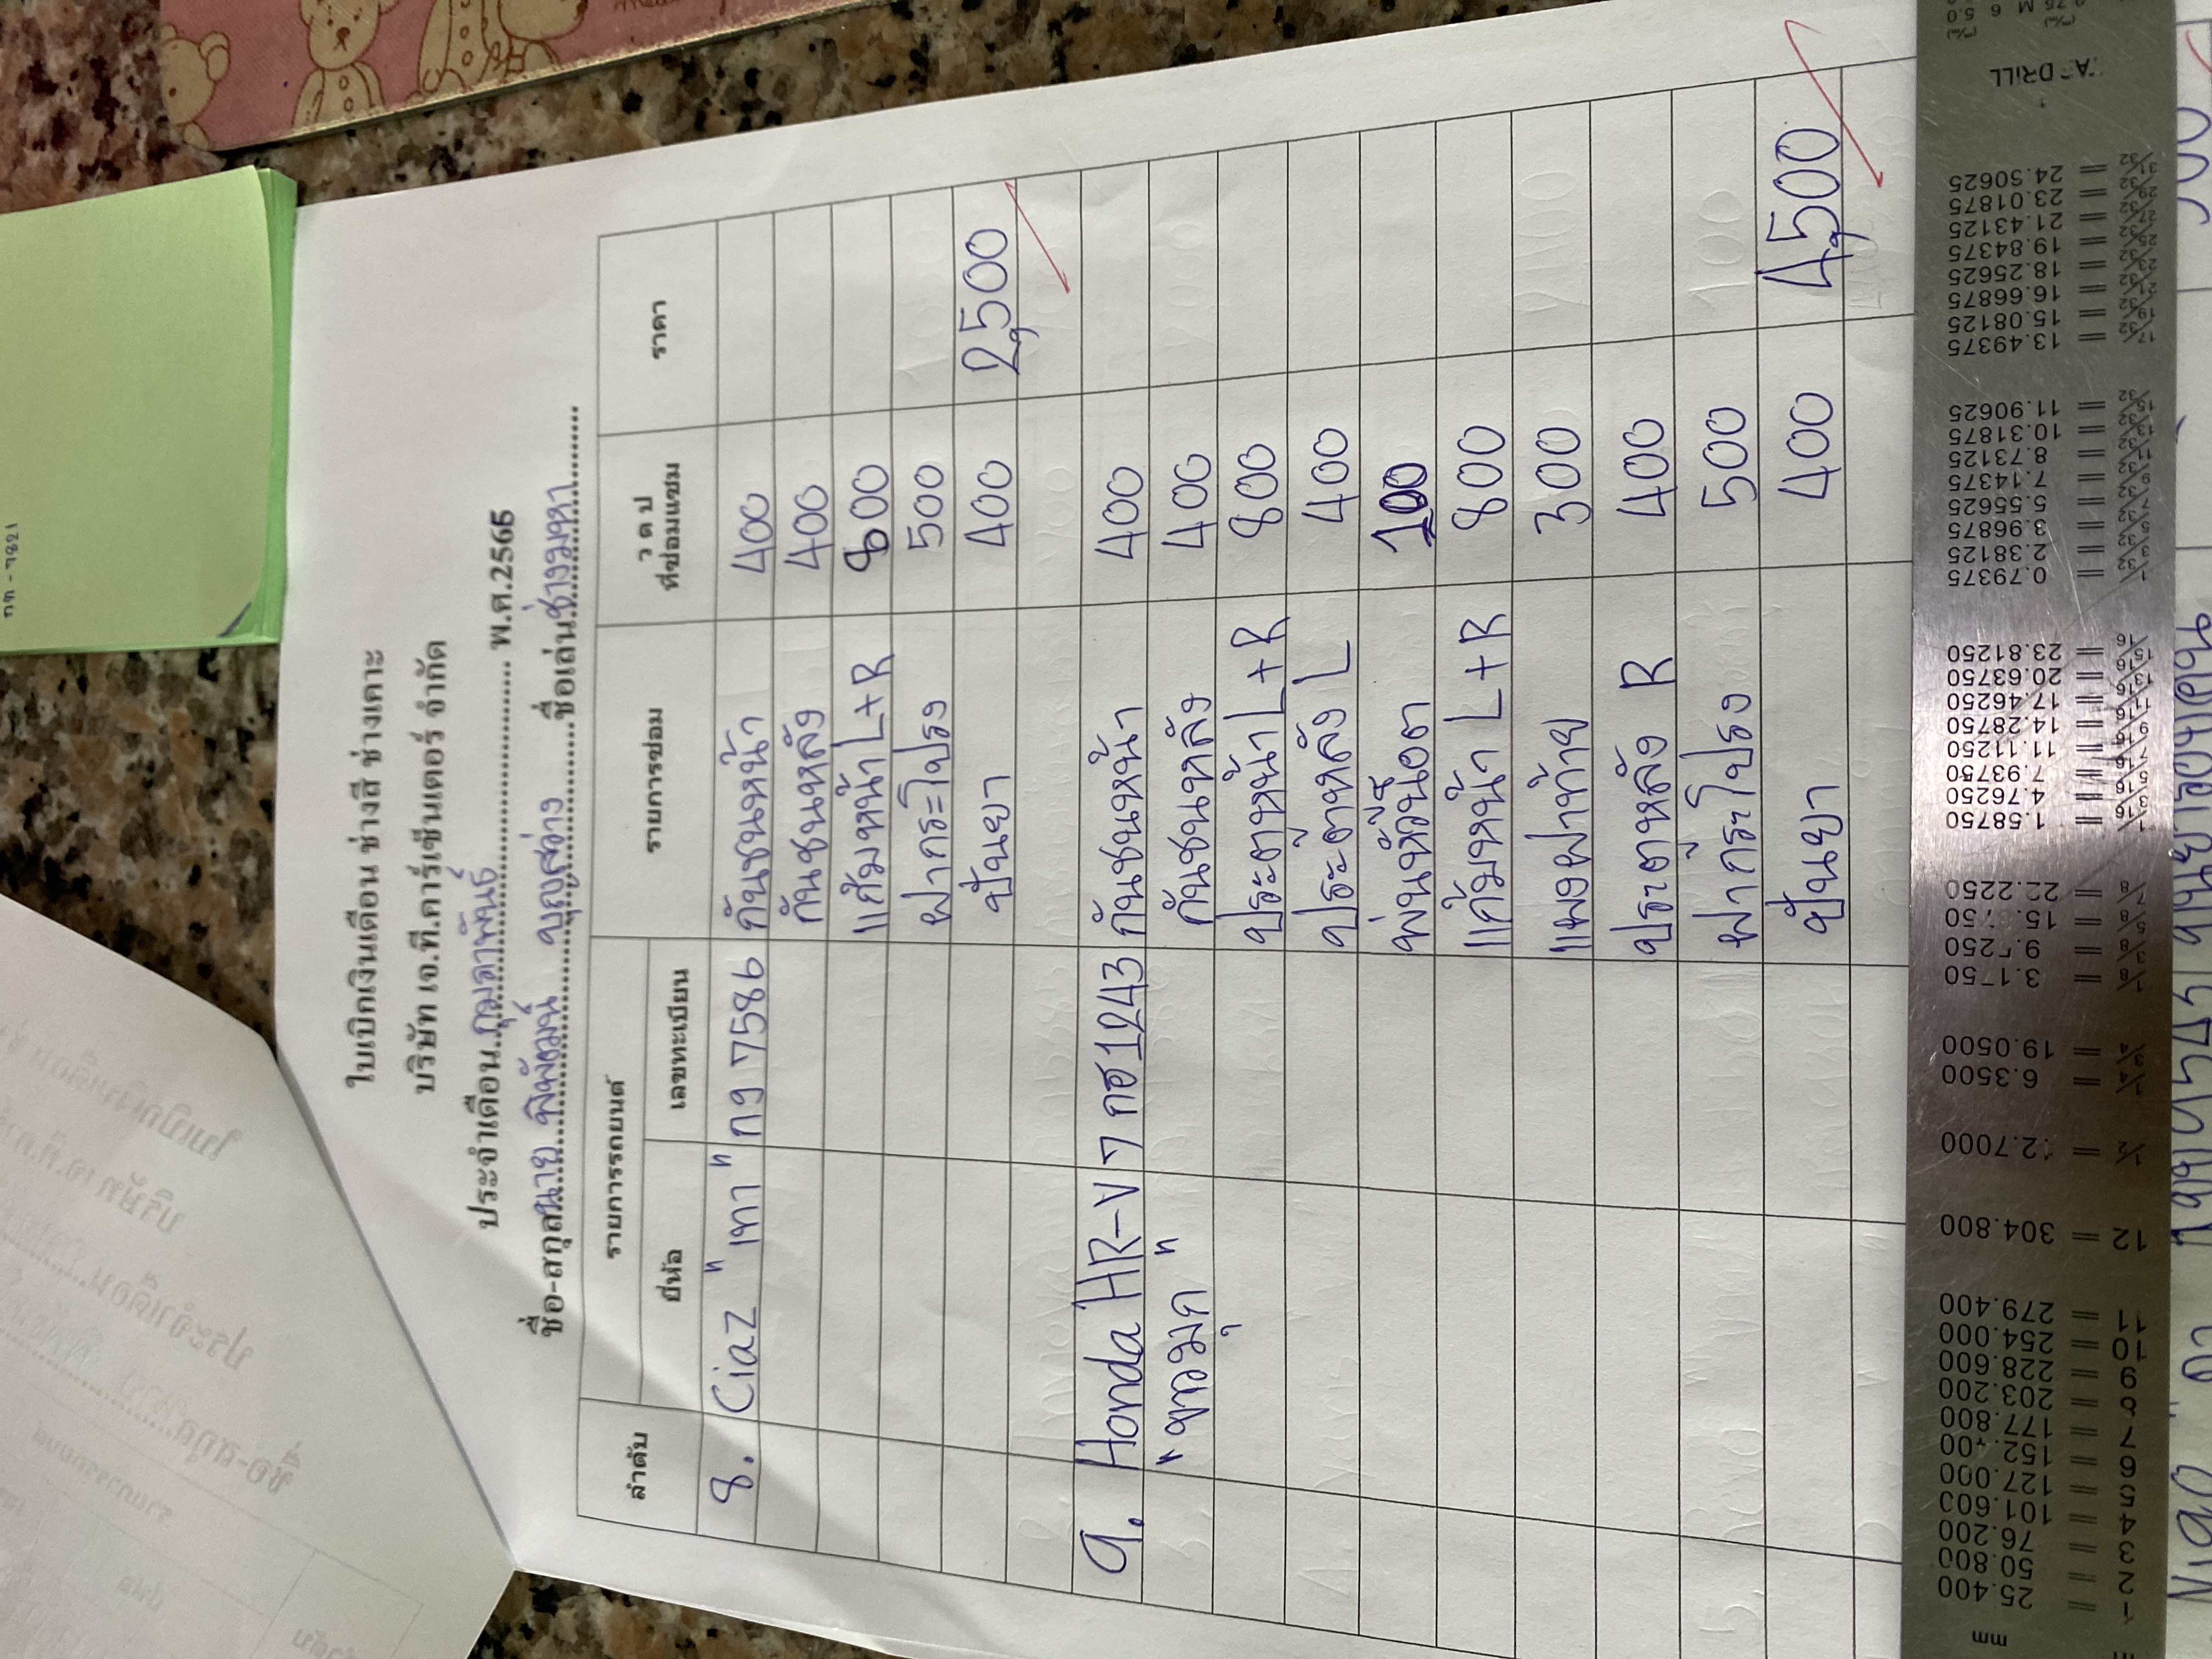 ใบเบิกเงินเดือน ช่างสี ช่างเคาะ
บริษัท เจ.ที.คาร์เซ็นเตอร์ จำกัด
ประจำเดือน กุมภาพันธ์ พ.ศ.2566
ชื่อ-สกุล นาย พิพัฒน์ บุญสว่าง ชื่อเล่น ช่างมหา
ลำดับ รายการรถยนต์ รายการซ่อม ว ด ป ที่ซ่อมแซม ราคา
ยี่ห้อ เลขทะเบียน
8. Ciaz "เทา" กง 7586 กันชนหน้า 400
กันชนหลัง 400
แก้มหน้า L+R 800
ฝากระโปรง 500
ปั่นยา 400 2,500
9. Honda HR-V 7 กฮ 1243 กันชนหน้า 400
"ขาวมุก" กันชนหลัง 400
ประตูหน้า L+R 800
ประตูหลัง L 400
พ่นหัวน็อต 100
แก้มหน้า L+R 800
แผงฝาท้าย 300
ประตูหลัง R 400
ฝากระโปรง 500
ปั่นยา 400 4,500
กต - 7821
DRILL
mm
1 = 25.400
2 = 50.800
3 = 76.200
4 = 101.600
5 = 127.000
6 = 152.400
7 = 177.800
8 = 203.200
9 = 228.600
10 = 254.000
11 = 279.400
12 = 304.800
1/2 = 12.7000
1/4 = 6.3500
3/4 = 19.0500
1/8 = 3.1750
3/8 = 9.5250
5/8 = 15.8750
7/8 = 22.2250
1/16 = 1.58750
3/16 = 4.76250
5/16 = 7.93750
7/16 = 11.11250
9/16 = 14.28750
11/16 = 17.46250
13/16 = 20.63750
15/16 = 23.81250
1/32 = 0.79375
3/32 = 2.38125
5/32 = 3.96875
7/32 = 5.55625
9/32 = 7.14375
11/32 = 8.73125
13/32 = 10.31875
15/32 = 11.90625
17/32 = 13.49375
19/32 = 15.08125
21/32 = 16.66875
23/32 = 18.25625
25/32 = 19.84375
27/32 = 21.43125
29/32 = 23.01875
31/32 = 24.50625